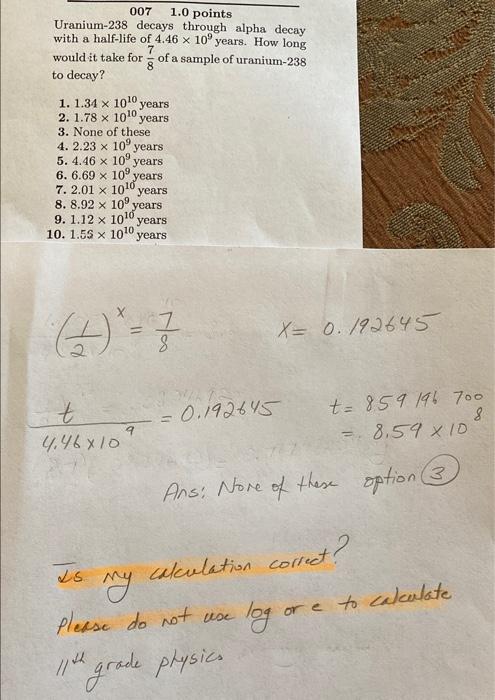 007 1.0 points
Uranium-238 decays through alpha decay
with a half-life of 4.46 × 10⁹ years. How long
would it take for 7/8 of a sample of uranium-238
to decay?
1. 1.34 × 10¹⁰ years
2. 1.78 × 10¹⁰ years
3. None of these
4. 2.23 × 10⁹ years
5. 4.46 × 10⁹ years
6. 6.69 × 10⁹ years
7. 2.01 × 10¹⁰ years
8. 8.92 × 10⁹ years
9. 1.12 × 10¹⁰ years
10. 1.56 × 10¹⁰ years
(1/2)ˣ = 7/8 x = 0.192645
t/4.46 × 10⁹ = 0.192645 t = 859 196 700
= 8.59 × 10⁸
Ans: None of these option ③
Is my calculation correct?
Please do not use log or e to calculate
11th grade physics